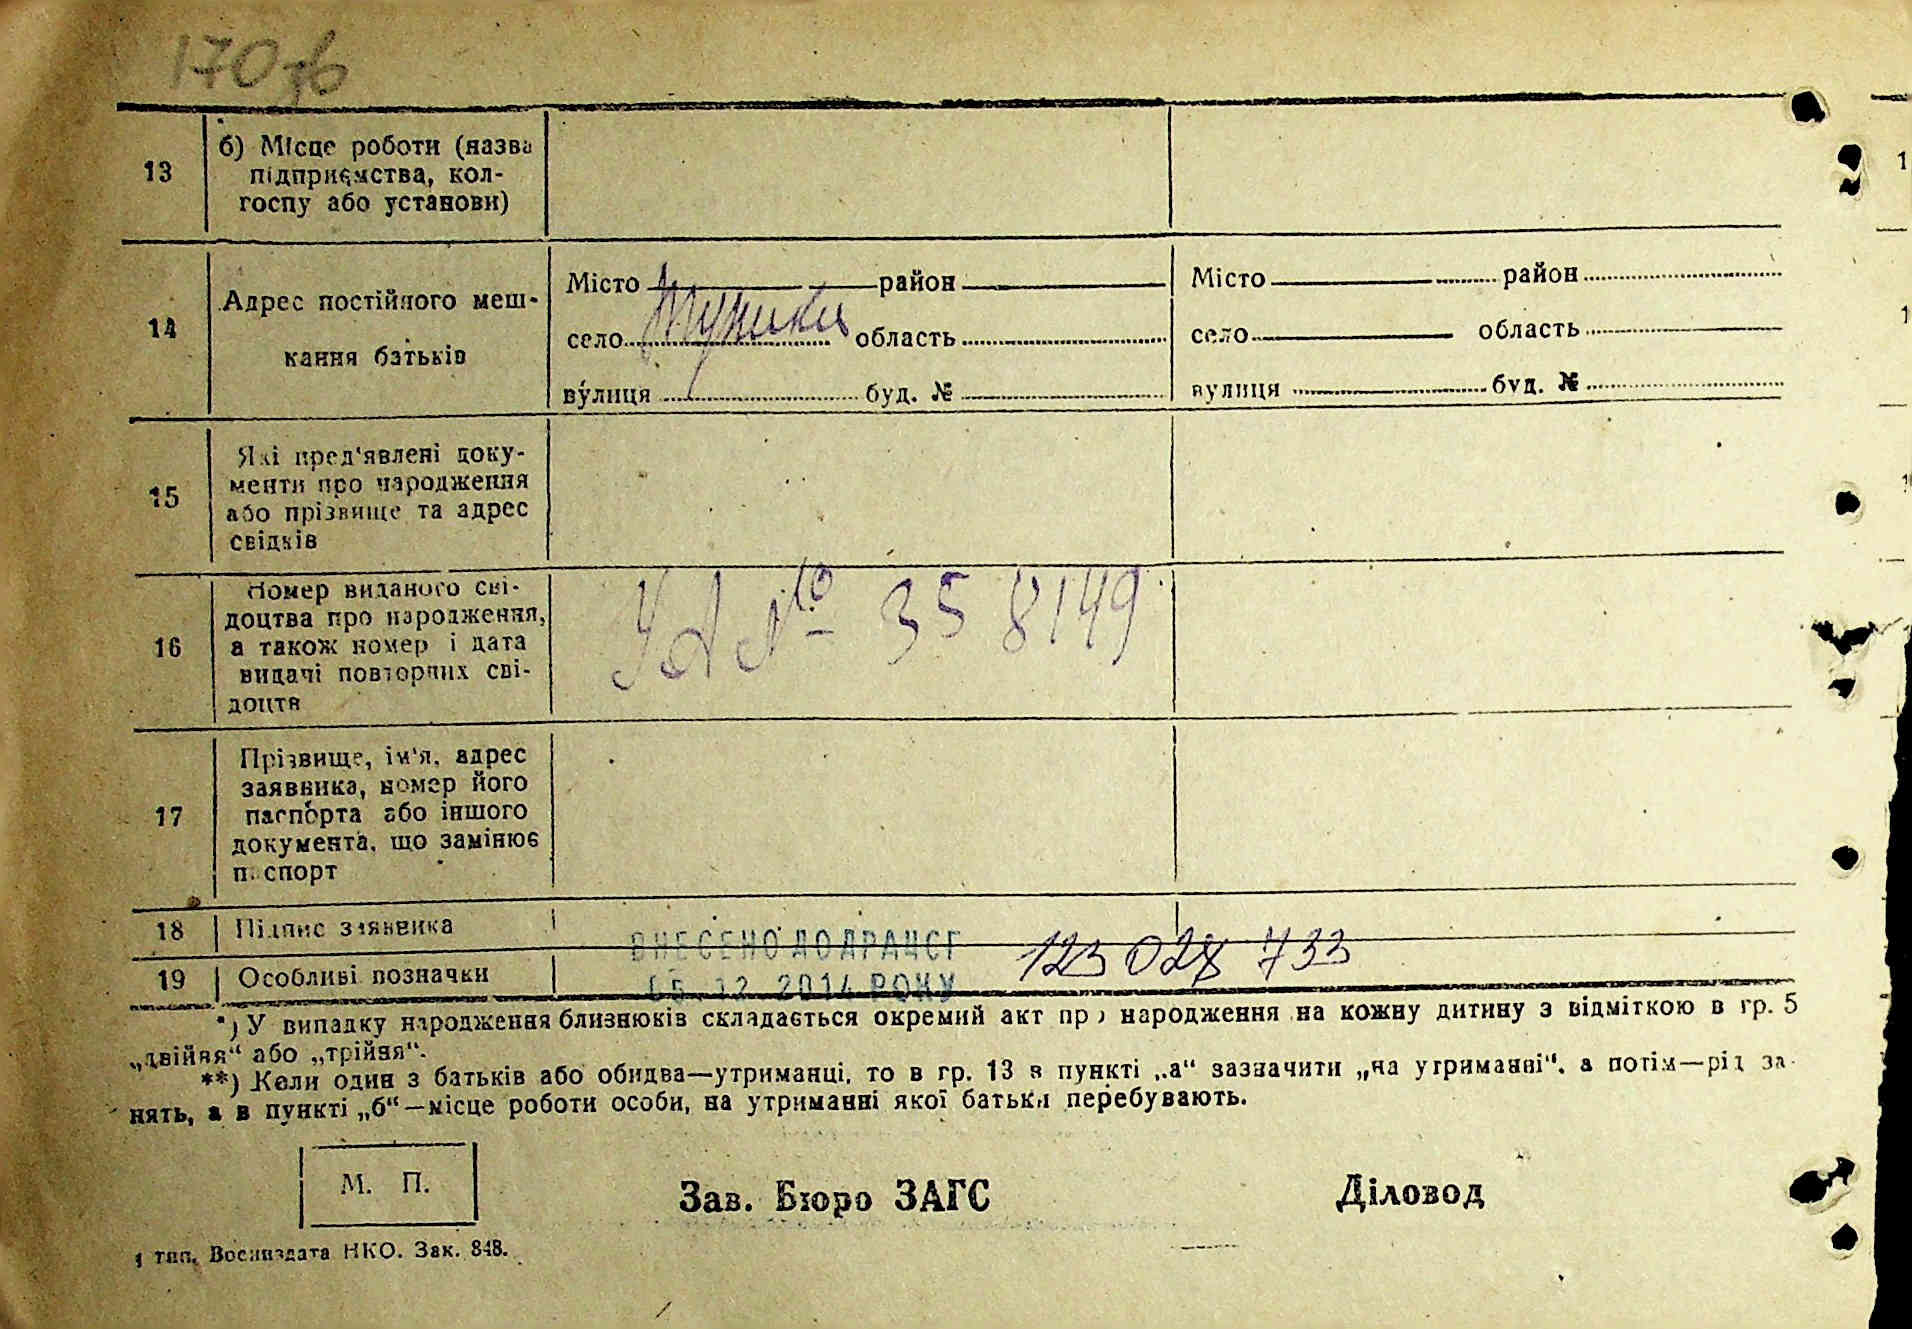 170 зв
13
б) Місце роботи (назва
підприємства, кол-
госпу або установи)
14
Адрес постійного меш-
кання батьків
Місто район
село Жуники область
вулиця буд. №
Місто район
село область
вулиця буд. №
15
Які пред'явлені доку-
менти про народження
або прізвище та адрес
свідків
16
Номер виданого сві-
доцтва про народження,
а також номер і дата
видачі повторних сві-
доцтв
УА № 358149
17
Прізвище, ім'я, адрес
заявника, номер його
паспорта або іншого
документа, що замінює
паспорт
18 Підпис заявника
ВНЕСЕНО ДО ДРАЦСГ
19 Особливі позначки
05.12.2014 РОКУ
123 028 733
*) У випадку народження близнюків складається окремий акт про народження на кожну дитину з відміткою в гр. 5
„двійня“ або „трійня“.
**) Коли один з батьків або обидва—утриманці, то в гр. 13 в пункті „а“ зазначити „на утриманні“, а потім—рід за-
нять, а в пункті „б“—місце роботи особи, на утриманні якої батьки перебувають.
М. П.
Зав. Бюро ЗАГС
Діловод
1 тип. Воениздата НКО. Зак. 848.